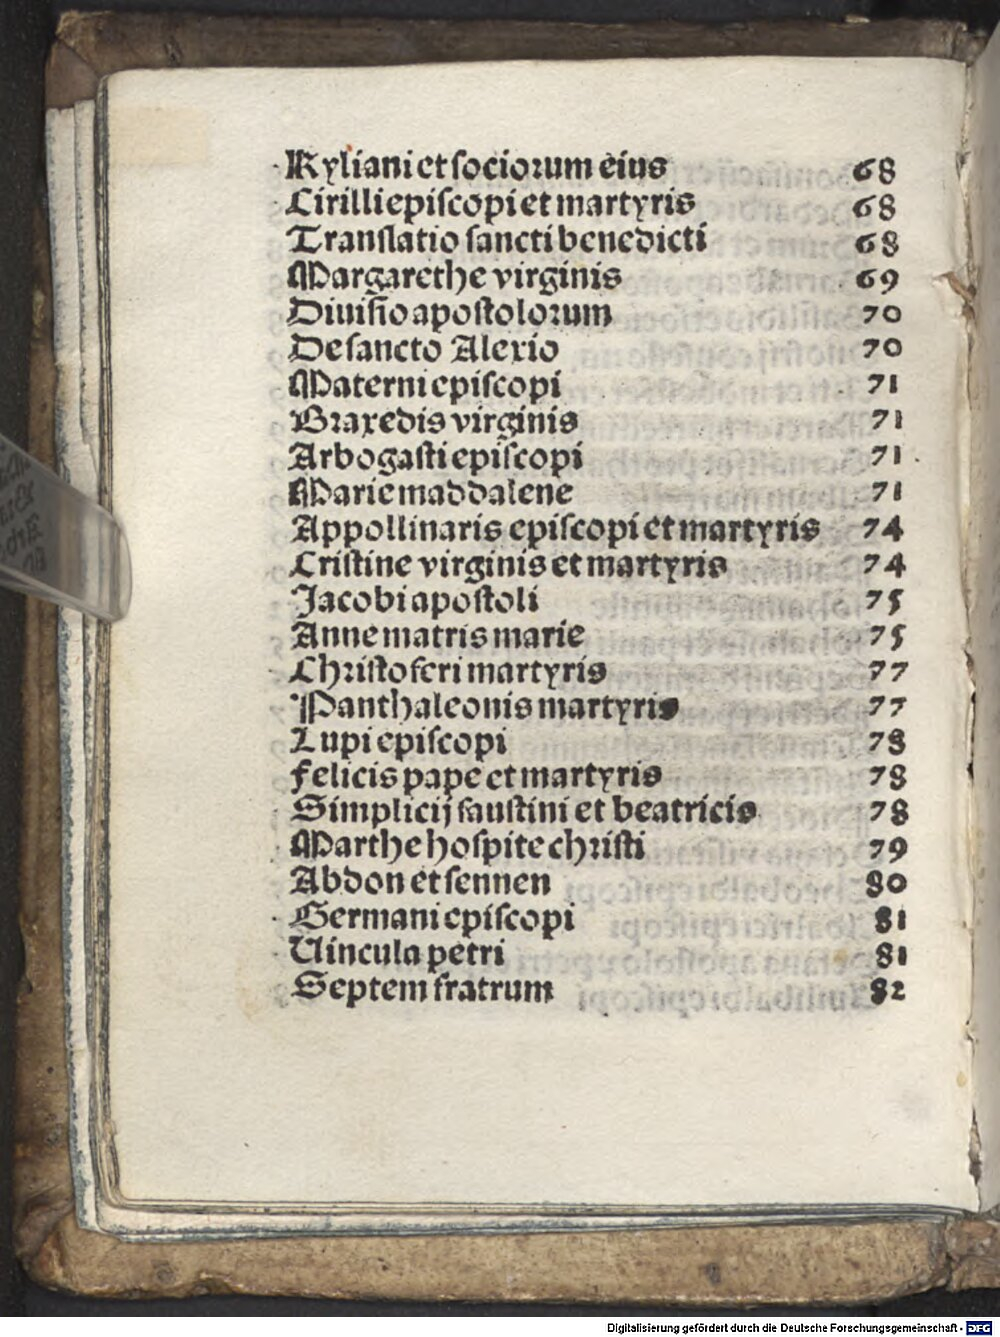 Kyliani et sociorum eius 68
Cirilli episcopi et martyris 68
Translatio sancti benedicti 68
Margarethe virginis 69
Diuisio apostolorum 70
De sancto Alexio 70
Materni episcopi 71
Braxedis virginis 71
Arbogasti episcopi 71
Marie maddalene 71
Appollinaris episcopi et martyris 74
Cristine virginis et martyris 74
Jacobi apostoli 75
Anne matris marie 75
Christoferi martyris 77
Panthaleonis martyris 77
Lupi episcopi 78
Felicis pape et martyris 78
Simplicij faustini et beatricis 78
Marthe hospite christi 79
Abdon et sennen 80
Germani episcopi 81
Vincula petri 81
Septem fratrum 82
Digitalisierung gefördert durch die Deutsche Forschungsgemeinschaft - DFG